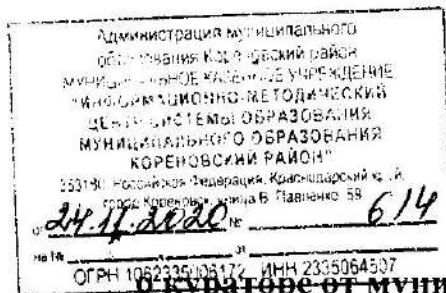 Администрация муниципального
образования Кореновский район
МУНИЦИПАЛЬНОЕ КАЗЕННОЕ УЧРЕЖДЕНИЕ
"ИНФОРМАЦИОННО-МЕТОДИЧЕСКИЙ
ЦЕНТР СИСТЕМЫ ОБРАЗОВАНИЯ
МУНИЦИПАЛЬНОГО ОБРАЗОВАНИЯ
КОРЕНОВСКИЙ РАЙОН"
353180, Российская Федерация, Краснодарский край,
город Кореновск, улица В. Павленко, 59
от 24.11.2020 № 614
на № от
ОГРН 1062335006172 ИНН 2335064507
О кураторе от муни